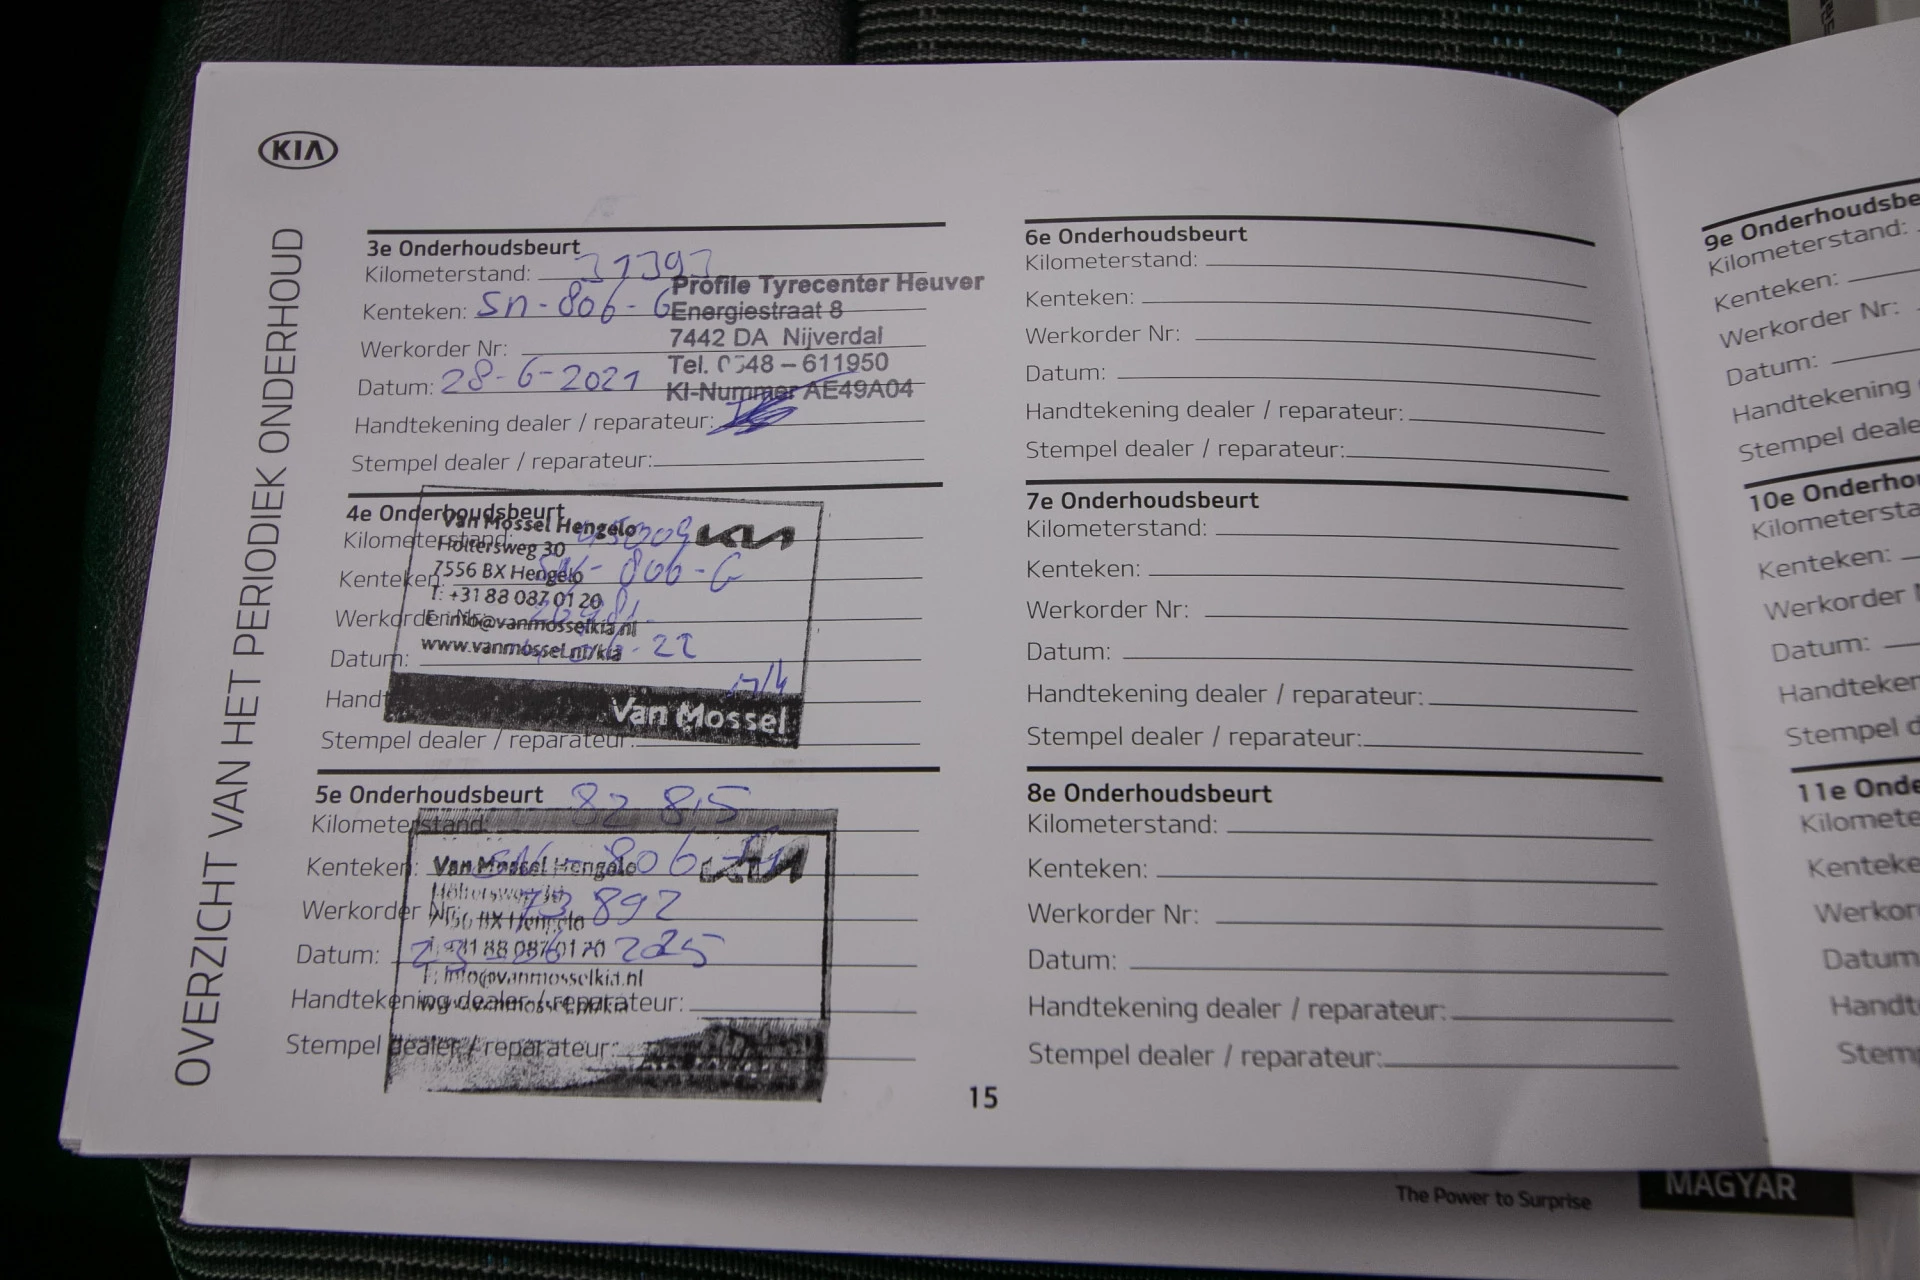 KIA
OVERZICHT VAN HET PERIODIEK ONDERHOUD
3e Onderhoudsbeurt
Kilometerstand: 31393
Kenteken: SN-806-G
Werkorder Nr:
Datum: 28-6-2021
Handtekening dealer / reparateur:
Stempel dealer / reparateur:
Profile Tyrecenter Heuver
Energiestraat 8
7442 DA Nijverdal
Tel. 0548 – 611950
KI-Nummer AE49A04
4e Onderhoudsbeurt
Kilometerstand:
Kenteken: 806-G
Werkorder Nr:
Datum: -22
Hand
Stempel dealer / reparateur:
Van Mossel Hengelo
KIA
7556 BX Hengelo
T: +31 88 087 01 20
E: info@vanmosselkia.nl
www.vanmossel.nl/kia
Van Mossel
5e Onderhoudsbeurt
Kilometerstand: 82 815
Kenteken: 806
Werkorder Nr: 73892
Datum: 2025
Handtekening dealer / reparateur:
Stempel dealer / reparateur:
Van Mossel Hengelo
KIA
7556 BX Hengelo
+31 88 087 01 20
info@vanmosselkia.nl
6e Onderhoudsbeurt
Kilometerstand:
Kenteken:
Werkorder Nr:
Datum:
Handtekening dealer / reparateur:
Stempel dealer / reparateur:
7e Onderhoudsbeurt
Kilometerstand:
Kenteken:
Werkorder Nr:
Datum:
Handtekening dealer / reparateur:
Stempel dealer / reparateur:
8e Onderhoudsbeurt
Kilometerstand:
Kenteken:
Werkorder Nr:
Datum:
Handtekening dealer / reparateur:
Stempel dealer / reparateur:
15
9e Onderhoudsbe
Kilometerstand:
Kenteken:
Werkorder Nr:
Datum:
Handtekening
Stempel deale
10e Onderho
Kilometersta
Kenteken:
Werkorder
Datum:
Handteken
Stempel d
11e Onde
Kilomete
Kenteke
Werkor
Datum
Handt
Stemp
The Power to Surprise
MAGYAR